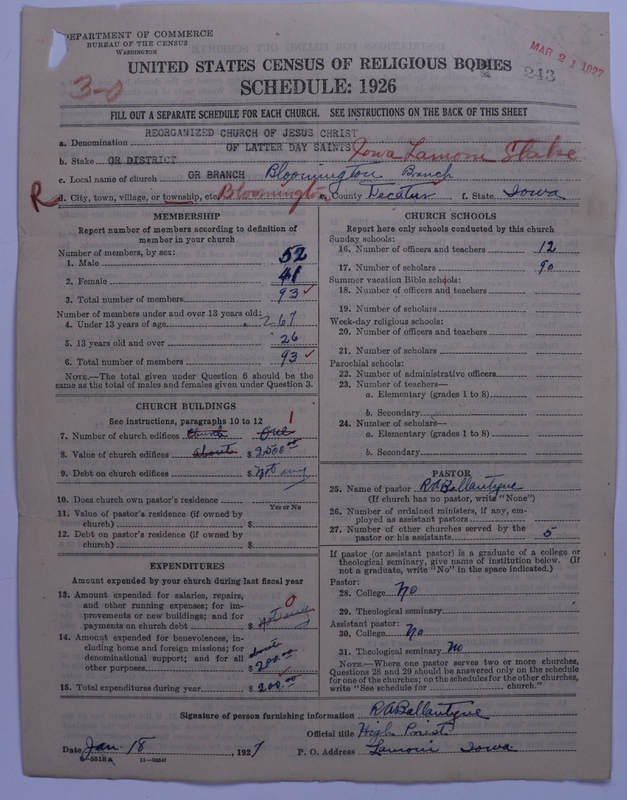 DEPARTMENT OF COMMERCE
BUREAU OF THE CENSUS
WASHINGTON
MAR 21 1927
243
UNITED STATES CENSUS OF RELIGIOUS BODIES
SCHEDULE: 1926
3-0
FILL OUT A SEPARATE SCHEDULE FOR EACH CHURCH. SEE INSTRUCTIONS ON THE BACK OF THIS SHEET
REORGANIZED CHURCH OF JESUS CHRIST
a. Denomination OF LATTER DAY SAINTS Iowa Lamoni Stake
b. Stake OR DISTRICT
c. Local name of church OR BRANCH Bloomington Branch
R d. City, town, village, or township, etc. Bloomington e. County Decatur f. State Iowa
MEMBERSHIP
Report number of members according to definition of
member in your church
Number of members, by sex:
1. Male 52
2. Female 41
3. Total number of members 93 ✓
Number of members under and over 13 years old:
4. Under 13 years of age 67
5. 13 years old and over 26
6. Total number of members 93 ✓
NOTE.—The total given under Question 6 should be the
same as the total of males and females given under Question 3.
CHURCH BUILDINGS
See instructions, paragraphs 10 to 12
7. Number of church edifices Church One 1
8. Value of church edifices about $ 2,500.00
9. Debt on church edifices $ Not any
10. Does church own pastor's residence
Yes or No
11. Value of pastor's residence (if owned by
church) $
12. Debt on pastor's residence (if owned by
church) $
EXPENDITURES
Amount expended by your church during last fiscal year
13. Amount expended for salaries, repairs,
and other running expenses; for im-
provements or new buildings; and for
payments on church debt $ not any 0
14. Amount expended for benevolences, in-
cluding home and foreign missions; for
denominational support; and for all
other purposes $ about 200.00
15. Total expenditures during year $ 200.00
CHURCH SCHOOLS
Report here only schools conducted by this church
Sunday schools:
16. Number of officers and teachers 12
17. Number of scholars 90
Summer vacation Bible schools:
18. Number of officers and teachers
19. Number of scholars
Week-day religious schools:
20. Number of officers and teachers
21. Number of scholars
Parochial schools:
22. Number of administrative officers
23. Number of teachers—
a. Elementary (grades 1 to 8)
b. Secondary
24. Number of scholars—
a. Elementary (grades 1 to 8)
b. Secondary
PASTOR
25. Name of pastor R A Ballantyne
(If church has no pastor, write "None")
26. Number of ordained ministers, if any, em-
ployed as assistant pastors
27. Number of other churches served by the
pastor or his assistants 5
If pastor (or assistant pastor) is a graduate of a college or
theological seminary, give name of institution below. (If
not a graduate, write "No" in the space indicated.)
Pastor:
28. College No
29. Theological seminary
Assistant pastor:
30. College No
31. Theological seminary No
NOTE.—Where one pastor serves two or more churches,
Questions 28 and 29 should be answered only on the schedule
for one of the churches; on the schedules for the other churches,
write "See schedule for church."
Signature of person furnishing information R A Ballantyne
Official title High Priest
Date Jan 18, 1927 P. O. Address Lamoni Iowa
8-5518a 11-9554f